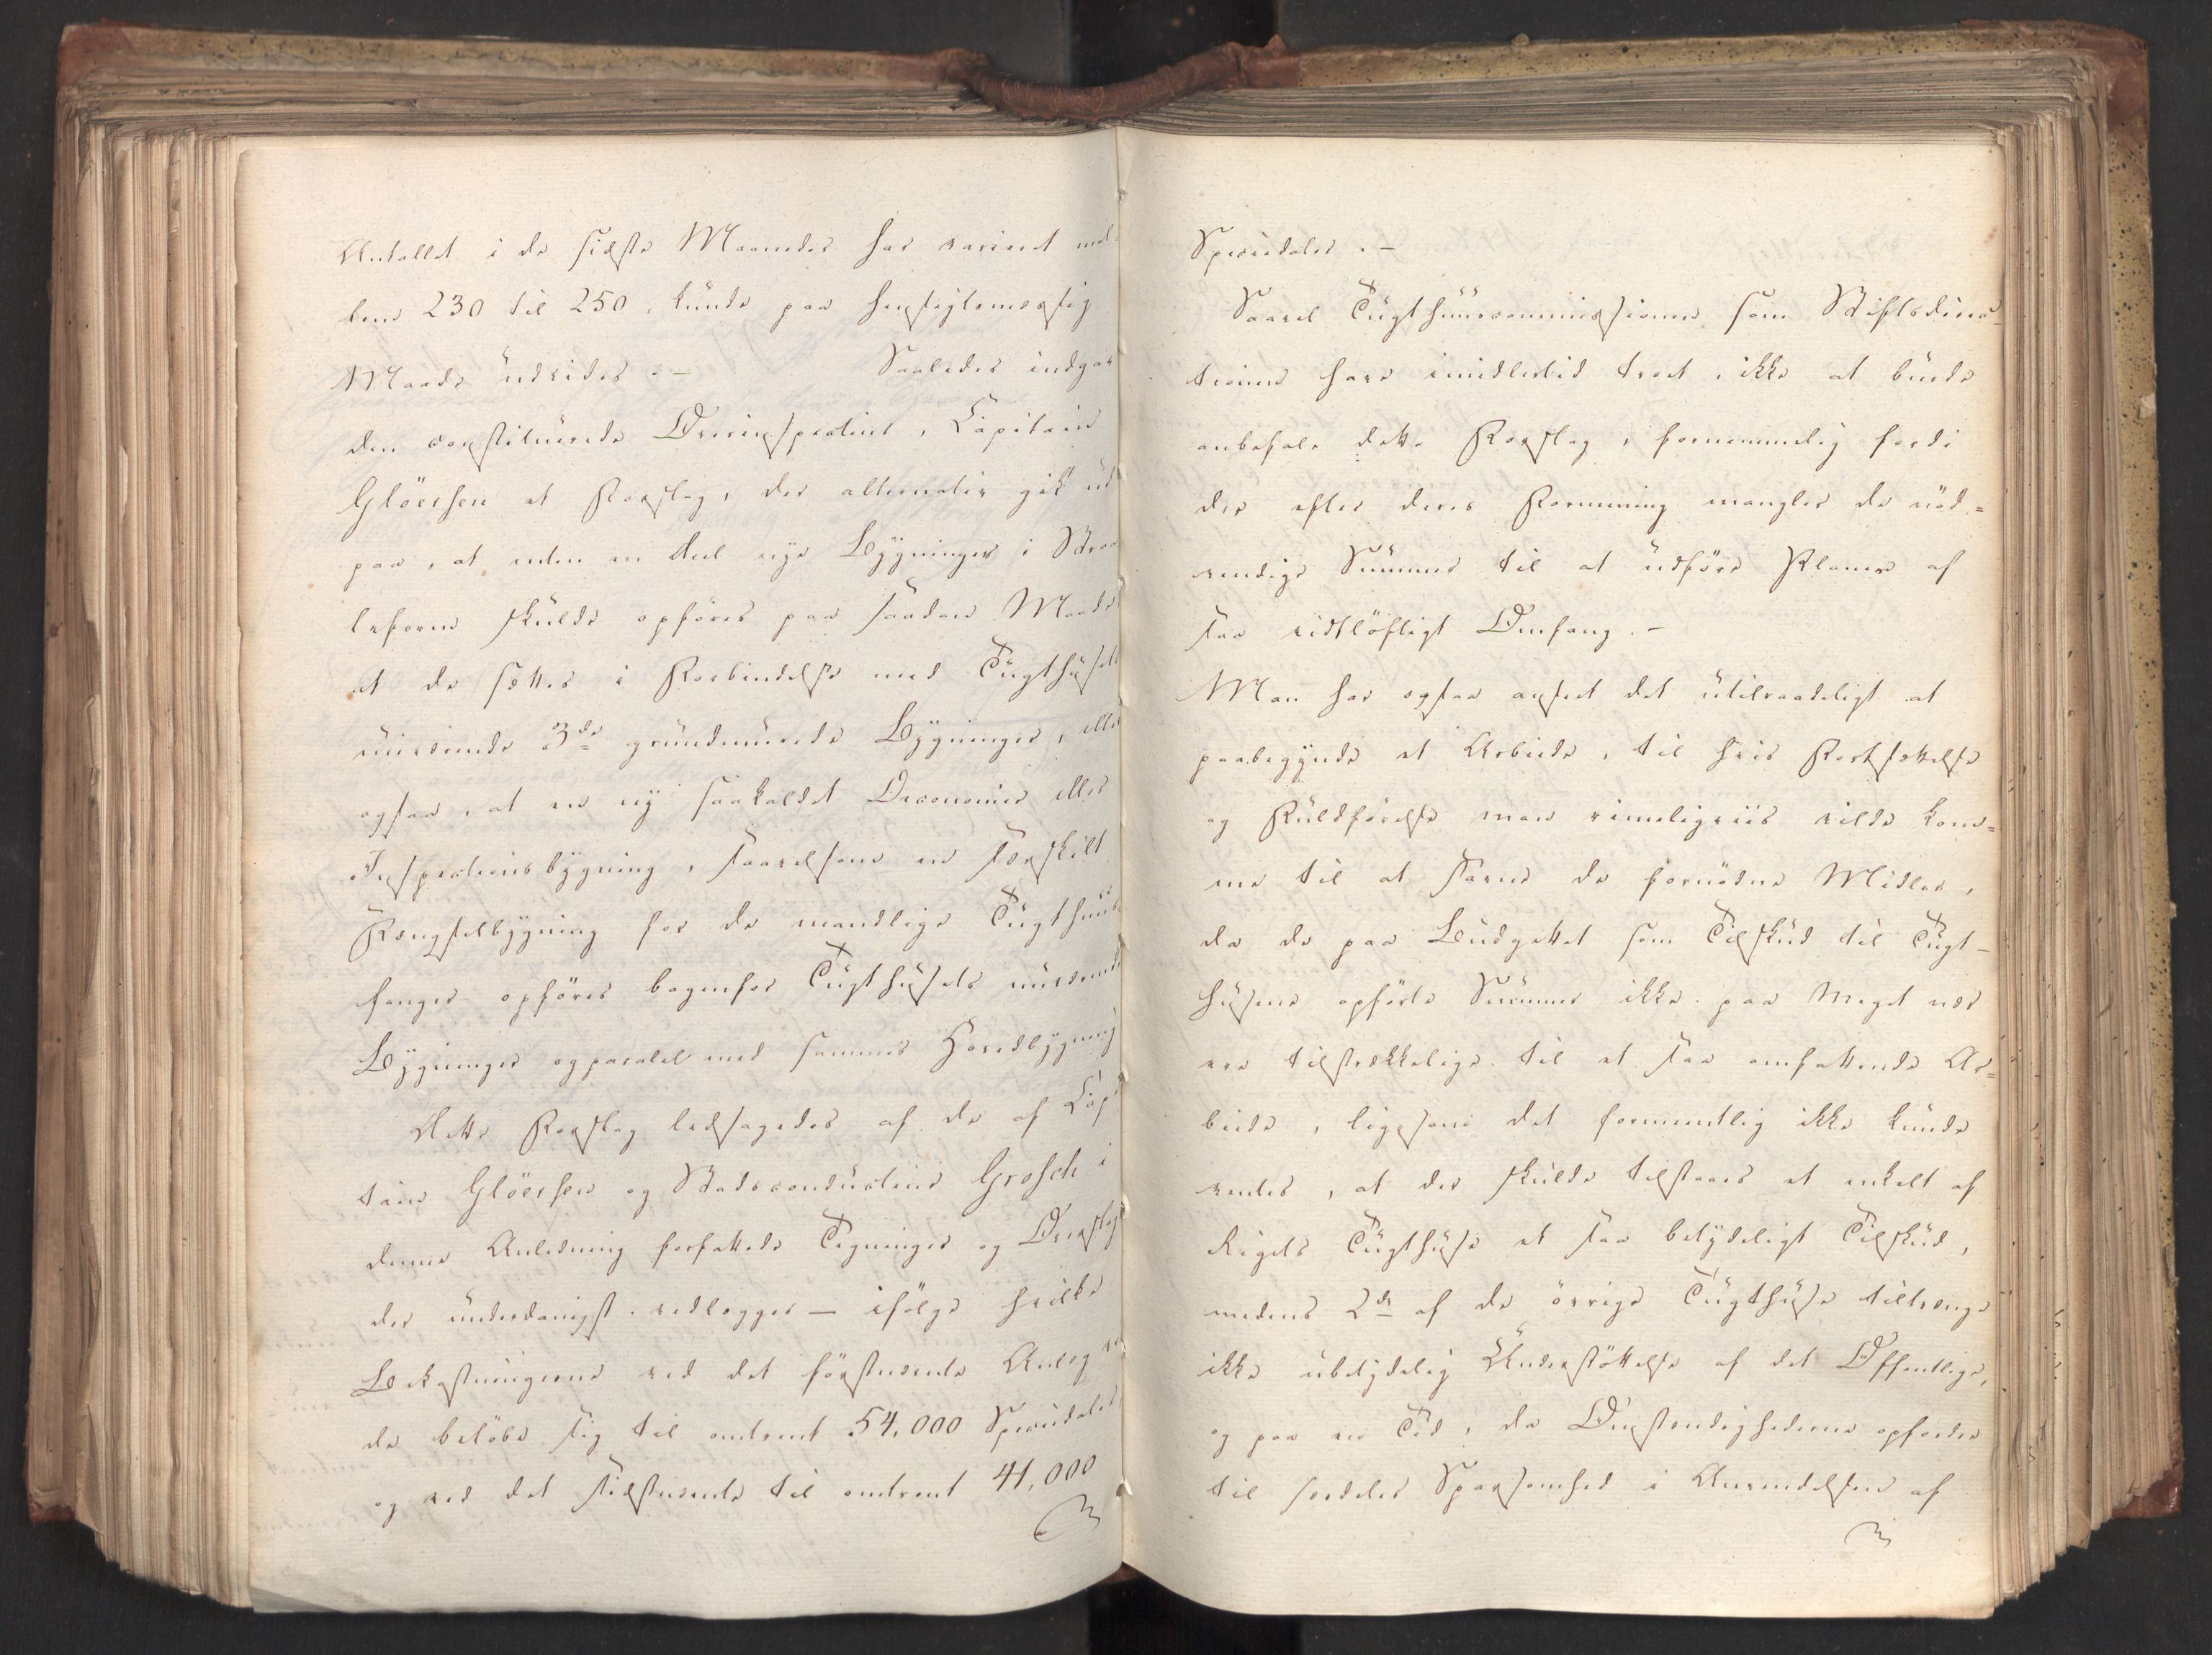 Antallet i de sidste Maaneder har varieret mel-
lem 230 til 250, kunde paa hensigtsmessig
Maade udvides. — Saaledes indgav
den constituerede Overinspecteur, Capitain
Glöersen et Forslag, der alternativ gik ud
paa, at enten en Deel nye Bygninger i Straa
leform skulde opföres paa saadan Maade
at de sættes i Forbindelse med Tugthusets
nuværende 3de grundmurede Bygninger, eller
ogsaa, at en ny saakaldet Oeconomie eller
Inspectionsbygning, saavelsom en særskilt
Fængselbygning for de mandlige Tugthuus
fanger opföres bagenfor Tugthusets nuværende
Bygninger og paralel med sammes Hovedbygning
Dette Forslag ledsagedes af de af Capi
tain Glöersen og Stadsconducteur Grosch i
denne Anledning forfattede Tegninger og Overslag
der underdanigst vedlægges — ifölge hvilke
Bekostningerne ved det förstnævnte Anlæg vil
de belöbe sig til omtrent 54,000 Speciedaler
og ved det sidstnævnte til omtrent 41,000
Speciedaler. —
Saavel Tugthuuscommissionen som Stiftsdirec-
tionen have imidlertid troet, ikke at burde
anbefale dette Forslag, fornemmelig fordi
der efter deres Formening mangler de nöd=
vendige Summer til at udföre Planer af
saa vidtlöftigt Omfang. —
Man har ogsaa anseet det utilraadeligt at
paabegynde et Arbeide, til hvis Fortsættelse
og Fuldförelse man rimeligviis vilde kom=
me til at savne de fornödne Midler,
da de paa Budgettet som Tilskud til Tugt-
husene opförte Summer ikke paa meget nær
ere tilstrækkelige til et saa omfattende Ar=
beide, ligesom det formeentlig ikke kunde
ventes, at der skulde tilstaaes et enkelt af
Rigets Tugthuse et saa betydeligt Tilskud,
medens 2de af de övrige Tugthuse tiltrænge
ikke ubetydelig Understöttelse af det Offentlige,
og paa en Tid, da Omstændighederne opfordre
til særdeles Sparsomhed i Anvendelsen af